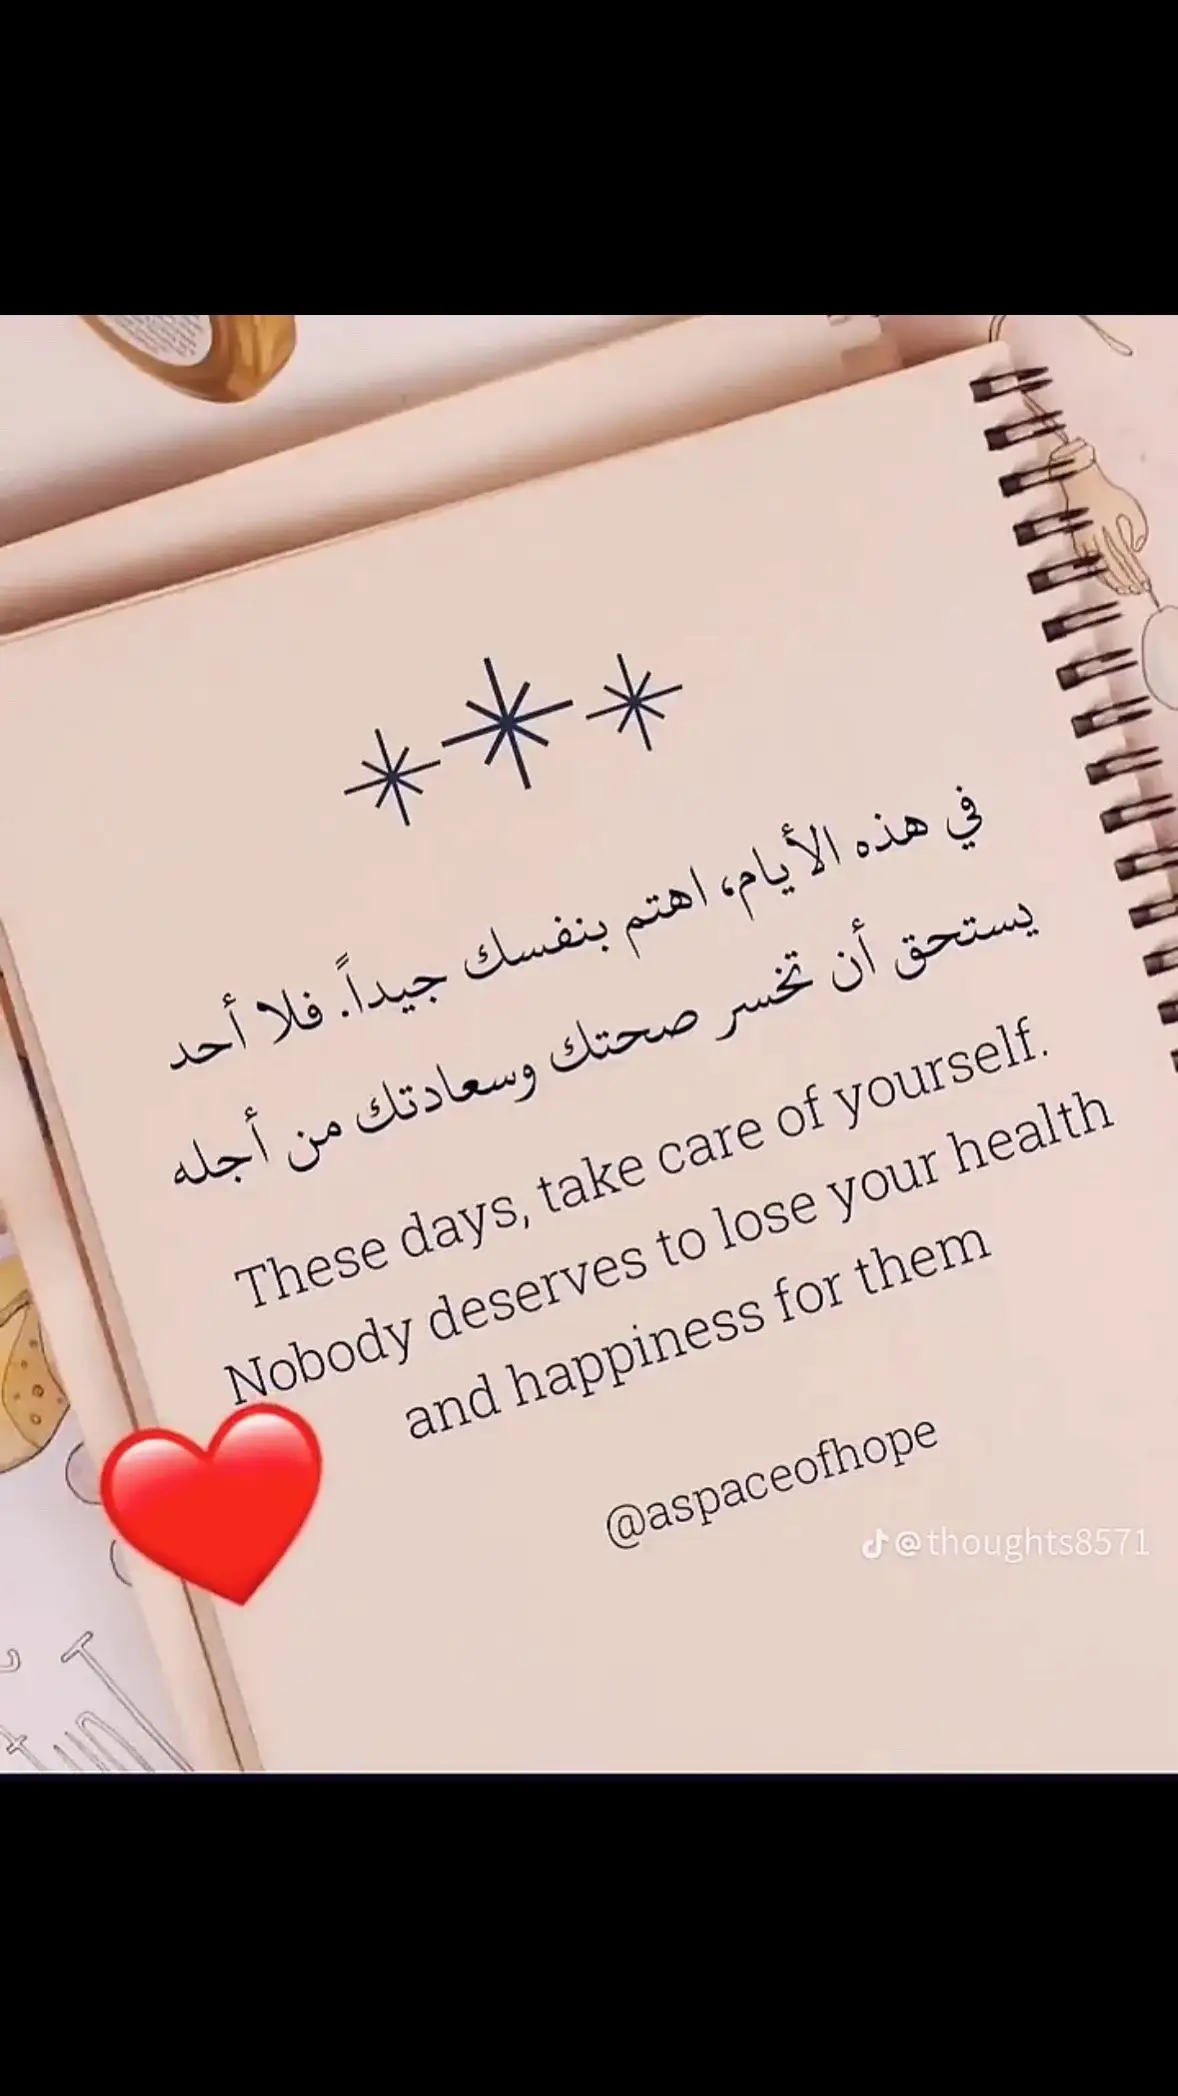 في هذه الأيام، اهتم بنفسك جيداً. فلا أحد
يستحق أن تخسر صحتك وسعادتك من أجله
These days, take care of yourself.
Nobody deserves to lose your health
and happiness for them
@aspaceofhope
@thoughts8571